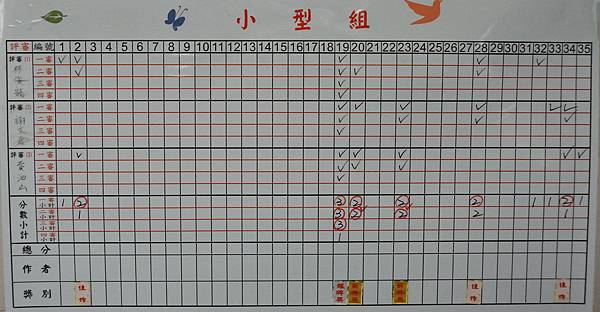 小型組
評審 編號 1 2 3 4 5 6 7 8 9 10 11 12 13 14 15 16 17 18 19 20 21 22 23 24 25 26 27 28 29 30 31 32 33 34 35
評審(1) 一審
二審
三審
四審
評審(2) 一審
二審
三審
四審
評審(3) 一審
二審
三審
四審
黃泗山
分數小計
一審小計 1 2 3 2 2 2 1 1 2 1
二審小計 1 3 2 2 2 1
三審小計 3
四審小計 1
總分
作者
獎別 佳作 銀牌獎 佳作 佳作